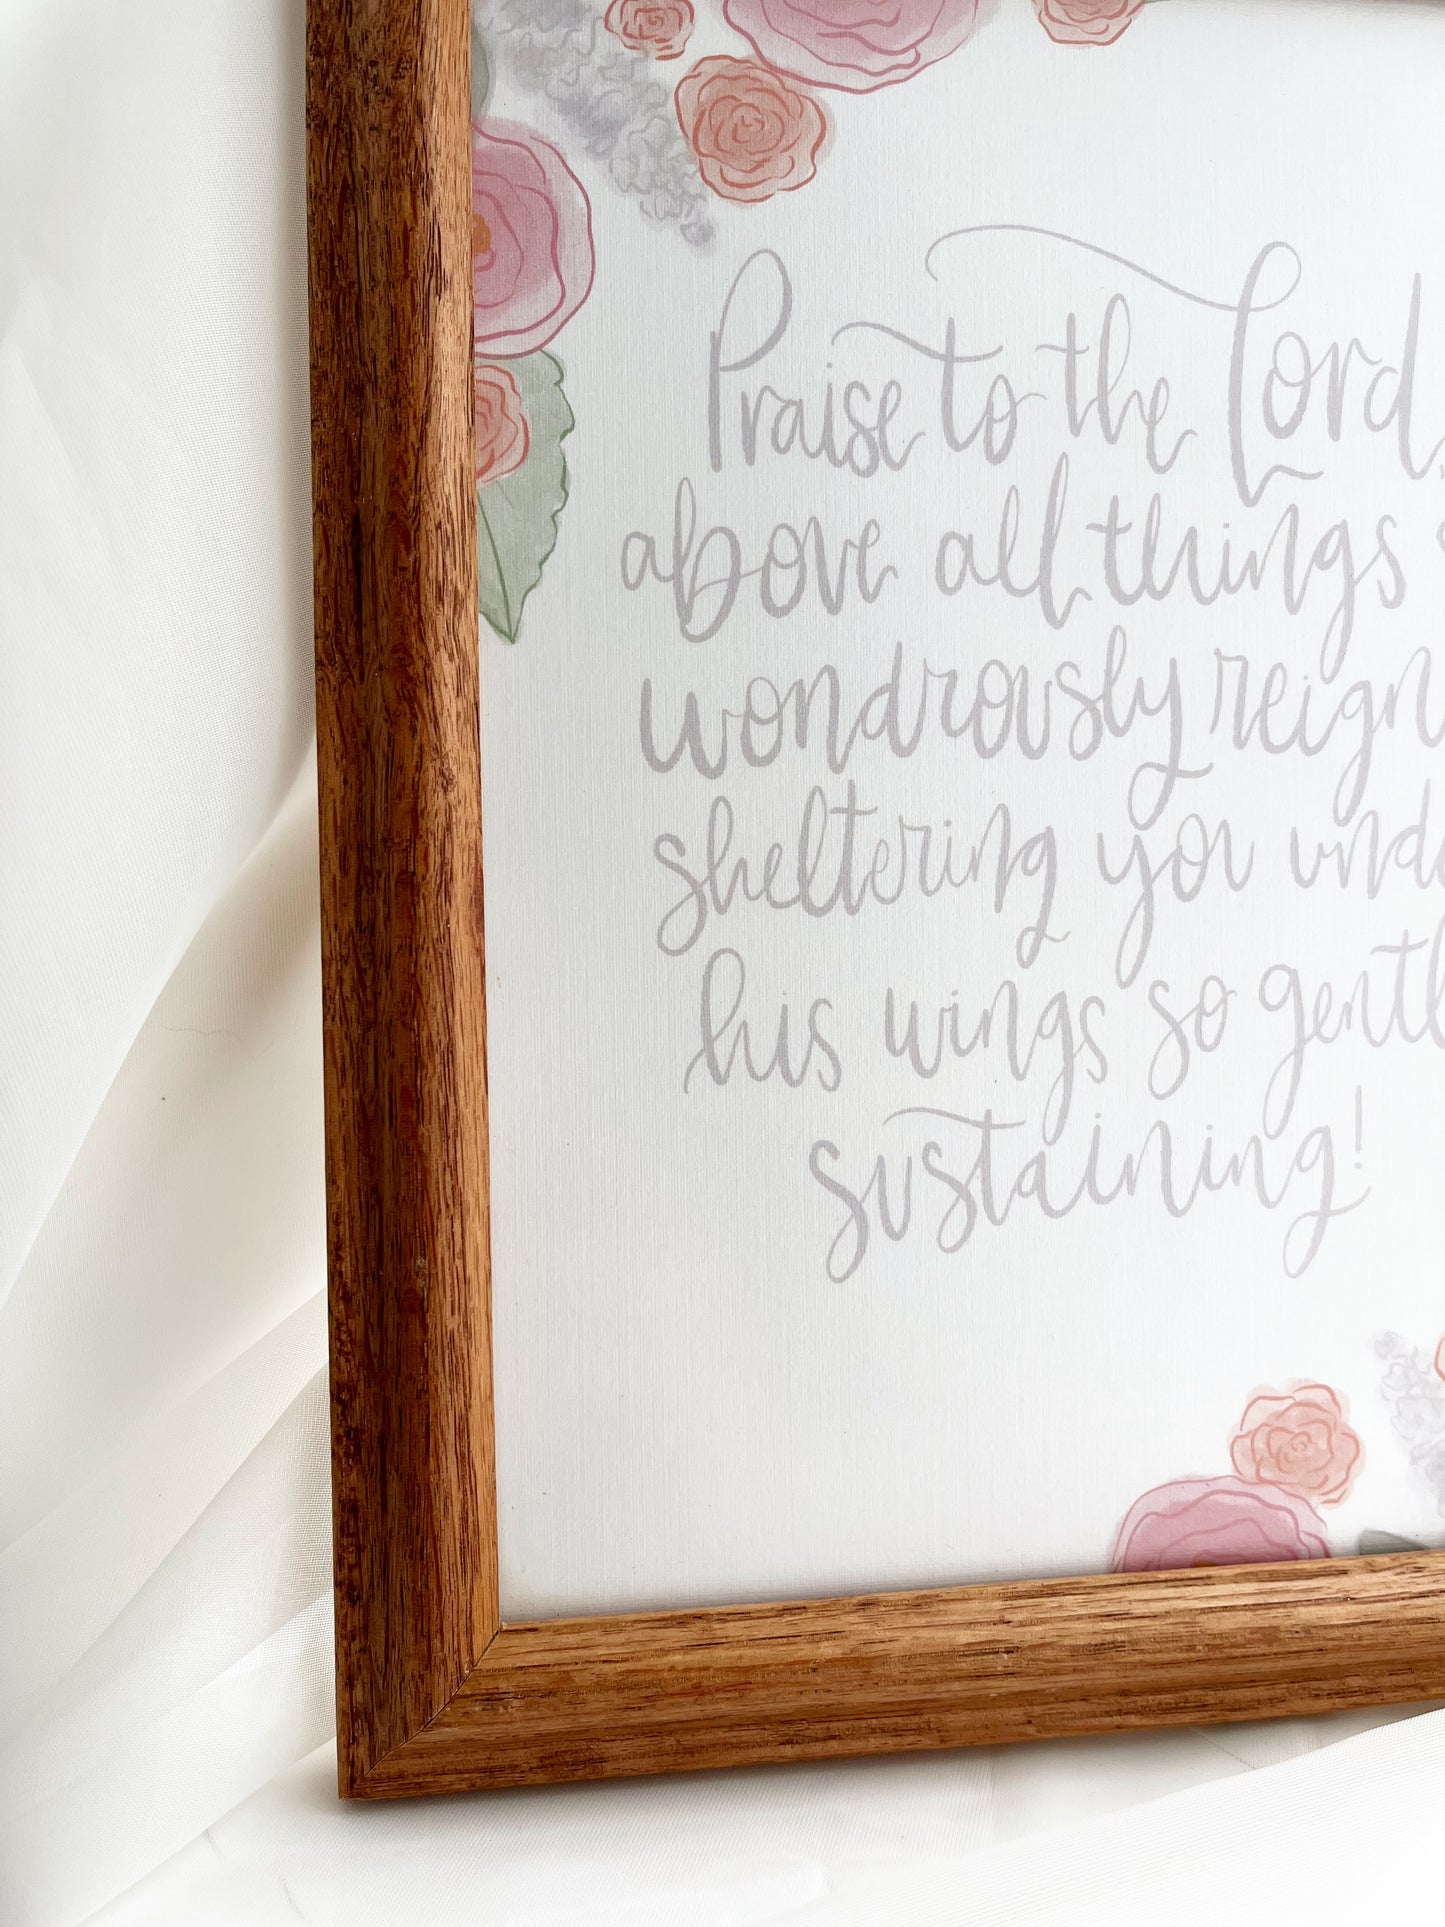 Praise to the Lord,
above all things
wondrously reign
sheltering you
his wings so
sustaining!